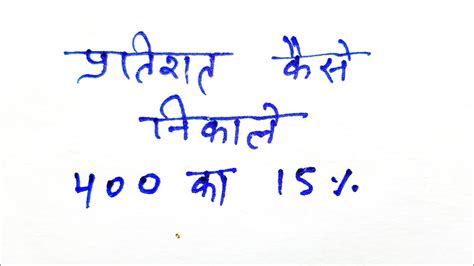 प्रतिशत कैसे
निकाले
400 का 15%